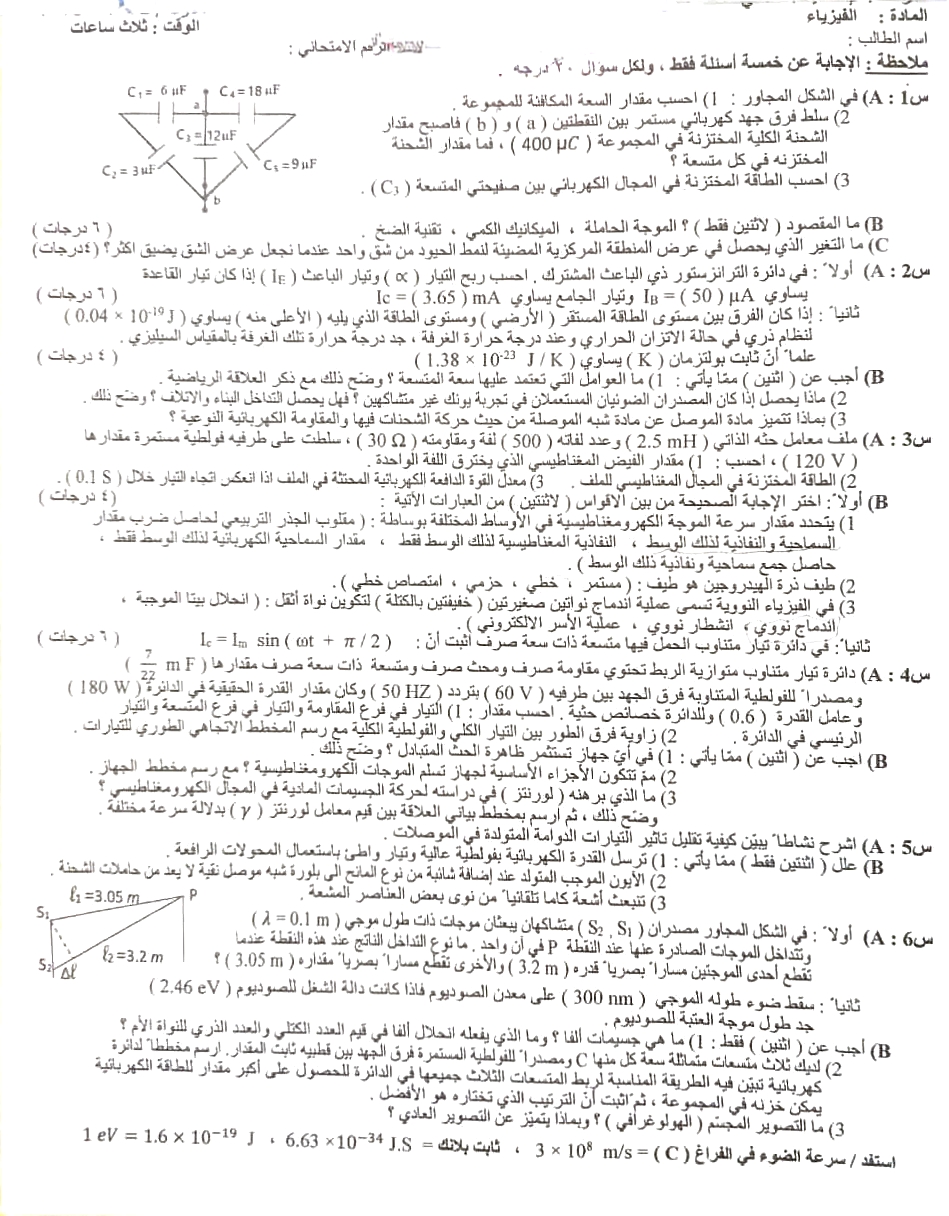 المادة : الفيزياء
الوقت : ثلاث ساعات
اسم الطالب :
الرقم الامتحاني :
ملاحظة : الإجابة عن خمسة أسئلة فقط ، ولكل سؤال ٢٠ درجه .
س1 : A) في الشكل المجاور : 1) احسب مقدار السعة المكافئة للمجموعة .
2) سلط فرق جهد كهربائي مستمر بين النقطتين ( a ) و ( b ) فاصبح مقدار
الشحنة الكلية المختزنة في المجموعة ( 400 μC ) ، فما مقدار الشحنة
المختزنه في كل متسعة ؟
3) احسب الطاقة المختزنة في المجال الكهربائي بين صفيحتي المتسعة ( C₃ ) .
C₁ = 6 μF
C₄ = 18 μF
a
C₃ = 12μF
C₂ = 3 μF
C₅ = 9 μF
b
B) ما المقصود ( لاثنين فقط ) ؟ الموجة الحاملة ، الميكانيك الكمي ، تقنية الضخ . ( ٦ درجات )
C) ما التغير الذي يحصل في عرض المنطقة المركزية المضيئة لنمط الحيود من شق واحد عندما نجعل عرض الشق يضيق اكثر ؟ (٤درجات)
س2 : A) أولاً : في دائرة الترانزستور ذي الباعث المشترك . احسب ربح التيار ( ∝ ) وتيار الباعث ( I_E ) إذا كان تيار القاعدة
يساوي I_B = ( 50 ) μA وتيار الجامع يساوي Ic = ( 3.65 ) mA ( ٦ درجات )
ثانياً : إذا كان الفرق بين مستوى الطاقة المستقر ( الأرضي ) ومستوى الطاقة الذي يليه ( الأعلى منه ) يساوي ( 0.04 × 10⁻¹⁹ J )
لنظام ذري في حالة الاتزان الحراري وعند درجة حرارة الغرفة ، جد درجة حرارة تلك الغرفة بالمقياس السيليزي .
علماً أنّ ثابت بولتزمان ( K ) يساوي ( 1.38 × 10⁻²³ J / K ) ( ٤ درجات )
B) أجب عن ( اثنين ) ممّا يأتي : 1) ما العوامل التي تعتمد عليها سعة المتسعة ؟ وضّح ذلك مع ذكر العلاقة الرياضية .
2) ماذا يحصل إذا كان المصدران الضوئيان المستعملان في تجربة يونك غير متشاكهين ؟ فهل يحصل التداخل البناء والاتلاف ؟ وضّح ذلك .
3) بماذا تتميز مادة الموصل عن مادة شبه الموصلة من حيث حركة الشحنات فيها والمقاومة الكهربائية النوعية ؟
س3 : A) ملف معامل حثه الذاتي ( 2.5 mH ) وعدد لفاته ( 500 ) لفة ومقاومته ( 30 Ω ) ، سلطت على طرفيه فولطية مستمرة مقدارها
( 120 V ) ، احسب : 1) مقدار الفيض المغناطيسي الذي يخترق اللفة الواحدة .
2) الطاقة المختزنة في المجال المغناطيسي للملف . 3) معدل القوة الدافعة الكهربائية المحتثة في الملف اذا انعكس اتجاه التيار خلال ( 0.1 S ) .
B) أولاً : اختر الإجابة الصحيحة من بين الاقواس ( لاثنتين ) من العبارات الآتية : ( ٤ درجات )
1) يتحدد مقدار سرعة الموجة الكهرومغناطيسية في الأوساط المختلفة بوساطة : ( مقلوب الجذر التربيعي لحاصل ضرب مقدار
السماحية والنفاذية لذلك الوسط ، النفاذية المغناطيسية لذلك الوسط فقط ، مقدار السماحية الكهربائية لذلك الوسط فقط ،
حاصل جمع سماحية ونفاذية ذلك الوسط ) .
2) طيف ذرة الهيدروجين هو طيف : ( مستمر ، خطي ، حزمي ، امتصاص خطي ) .
3) في الفيزياء النووية تسمى عملية اندماج نواتين صغيرتين ( خفيفتين بالكتلة ) لتكوين نواة أثقل : ( انحلال بيتا الموجبة ،
اندماج نووي ، انشطار نووي ، عملية الأسر الالكتروني ) .
ثانياً : في دائرة تيار متناوب الحمل فيها متسعة ذات سعة صرف أثبت أنّ : I_c = I_m sin ( ωt + π / 2 ) ( ٦ درجات )
س4 : A) دائرة تيار متناوب متوازية الربط تحتوي مقاومة صرف ومحث صرف ومتسعة ذات سعة صرف مقدارها ( 7/22 mF )
ومصدراً للفولطية المتناوبة فرق الجهد بين طرفيه ( 60 V ) بتردد ( 50 HZ ) وكان مقدار القدرة الحقيقية في الدائرة ( 180 W )
وعامل القدرة ( 0.6 ) وللدائرة خصائص حثية . احسب مقدار : 1) التيار في فرع المقاومة والتيار في فرع المتسعة والتيار
الرئيسي في الدائرة . 2) زاوية فرق الطور بين التيار الكلي والفولطية الكلية مع رسم المخطط الاتجاهي الطوري للتيارات .
B) اجب عن ( اثنين ) ممّا يأتي : 1) في أيّ جهاز تستثمر ظاهرة الحث المتبادل ؟ وضّح ذلك .
2) ممّ تتكون الأجزاء الأساسية لجهاز تسلم الموجات الكهرومغناطيسية ؟ مع رسم مخطط الجهاز .
3) ما الذي برهنه ( لورنتز ) في دراسته لحركة الجسيمات المادية في المجال الكهرومغناطيسي ؟
وضّح ذلك ، ثم أرسم بمخطط بياني العلاقة بين قيم معامل لورنتز ( γ ) بدلالة سرعة مختلفة .
س5 : A) اشرح نشاطاً يبيّن كيفية تقليل تاثير التيارات الدوامة المتولدة في الموصلات .
B) علل ( اثنتين فقط ) ممّا يأتي : 1) ترسل القدرة الكهربائية بفولطية عالية وتيار واطئ باستعمال المحولات الرافعة .
2) الأيون الموجب المتولد عند إضافة شائبة من نوع المانح الى بلورة شبه موصل نقية لا يعد من حاملات الشحنة .
3) تنبعث أشعة كاما تلقائياً من نوى بعض العناصر المشعة .
س6 : A) أولاً : في الشكل المجاور مصدران ( S₂ , S₁ ) متشاكهان يبعثان موجات ذات طول موجي ( λ = 0.1 m )
وتتداخل الموجات الصادرة عنها عند النقطة P في أن واحد . ما نوع التداخل الناتج عند هذه النقطة عندما
تقطع أحدى الموجتين مساراً بصرياً قدره ( 3.2 m ) والأخرى تقطع مساراً بصرياً مقداره ( 3.05 m ) ؟
ℓ₁ =3.05 m
P
S₁
S₂
Δℓ
ℓ₂=3.2 m
ثانياً : سقط ضوء طوله الموجي ( 300 nm ) على معدن الصوديوم فاذا كانت دالة الشغل للصوديوم ( 2.46 eV )
جد طول موجة العتبة للصوديوم .
B) أجب عن ( اثنين ) فقط : 1) ما هي جسيمات ألفا ؟ وما الذي يفعله انحلال ألفا في قيم العدد الكتلي والعدد الذري للنواة الأم ؟
2) لديك ثلاث متسعات متماثلة سعة كل منها C ومصدراً للفولطية المستمرة فرق الجهد بين قطبيه ثابت المقدار . ارسم مخططاً لدائرة
كهربائية تبيّن فيه الطريقة المناسبة لربط المتسعات الثلاث جميعها في الدائرة للحصول على أكبر مقدار للطاقة الكهربائية
يمكن خزنه في المجموعة ، ثم اثبت أنّ الترتيب الذي تختاره هو الأفضل .
3) ما التصوير المجسّم ( الهولوغرافي ) ؟ وبماذا يتميّز عن التصوير العادي ؟
استفد / سرعة الضوء في الفراغ ( C ) = 3 × 10⁸ m/s ، ثابت بلانك = 6.63 ×10⁻³⁴ J.S ، 1 eV = 1.6 × 10⁻¹⁹ J